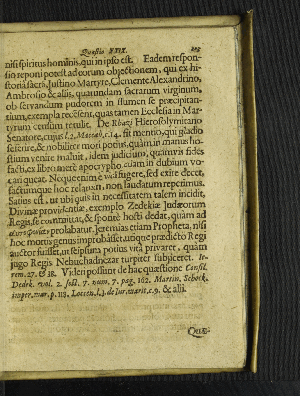 Quæstio XXIX. 
nisi spiritus hominis, qui in ipso est. Eadem respon-
sio reponi potest ad eorum objectionem, qui ex hi-
storia sacra, Justino Martyre, Clemente Alexandrino,
Ambrosio & aliis, quarundam sacrarum virginum,
ob servandum pudorem in flumen se præcipitan-
tium, exempla recensent, quas tamen Ecclesia in Mar-
tyrum censum retulit. De Rhazi Hierosolymitano
Senatore, cujus l. 2. Maccab. c. 14. fit mentio, qui gladio
se ferire, & nobiliter mori potius, quam in manus ho-
stium venire maluit, idem judicium, quamvis fides
facti, ex libro mere apocrypho in dubium vo-
cari queat. Neque enim è vita fugere, sed exire decet,
factumque hoc relatum, non laudatum reperimus.
Satius est, ut ubi quis in necessitatem talem incidit,
Divinæ providentiæ, exemplo Zedekiæ Judæorum
Regis, se committat, & sponte hosti dedat, quam ad
prolabatur. Jeremias etiam Propheta, nisi
hoc mortis genus improbasset, utique prædicto Regi
auctor fuisset, ut seipsum potius vita privaret, quam
jugo Regis Nebuchadnezar turpiter subjiceret. Je-
rem. 27. & 38. Videri possunt de hac quæstione Consil.
Dedek. vol. 2. sect. 7. num. 7. pag. 162. Martin. Schock.
imper. mar. p. 113. Loccen. l. 3. de Jur. marit. c. 9. & alii.
QUÆ-